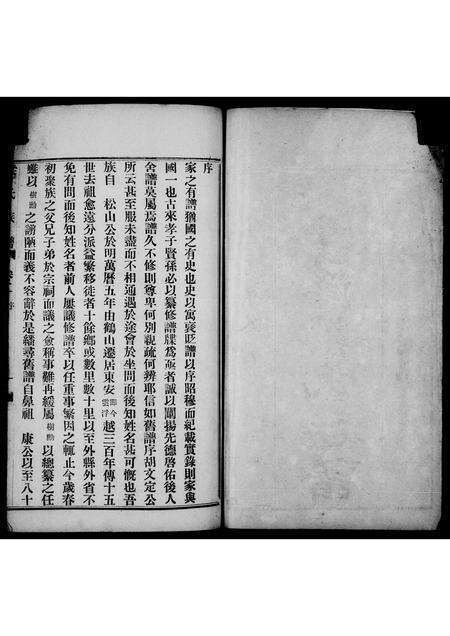 序
家之有譜猶國之有史也史以寓褒貶譜以序昭穆而紀載實錄則家與
國一也古來孝子賢孫必以纂修譜牒爲兢兢者誠以闡揚先德啓佑後人
舍譜莫屬焉譜久不修則尊卑何別親疏何辨耶信如舊譜序胡文定公
所云甚至服未盡而不相通遇於途會於坐問而後知姓名甚可慨也吾
族自 松山公於明萬曆五年由鶴山遷居東安即今雲浮越三百年傳十五
世去祖愈遠分派益繁移徙者十餘鄉或數里數十里以至外縣外省不
免有問而後知姓名者前人屢議修譜卒以任重事繁因之輒止今歲春
初聚族之父兄子弟於宗祠而議之僉稱事難再緩屬樹勛以總纂之任
難以樹勛之謭陋而義不容辭於是繙尋舊譜自鼻祖 康公以至八十